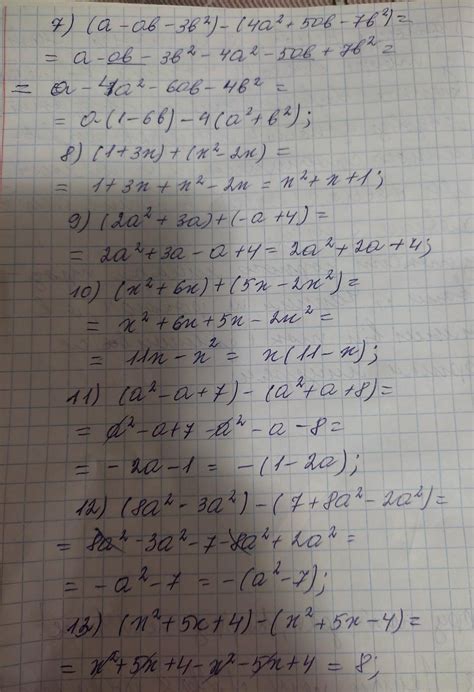 7) (a-ab-3b²)-(4a²+5ab-7b²)=
= a-ab-3b²-4a²-5ab+7b²=
= a-4a²-6ab-4b²=
= a(1-6b)-4(a²+b²);
8) (1+3x)+(x²-2x)=
= 1+3x+x²-2x=x²+x+1;
9) (2a²+3a)+(-a+4)=
= 2a²+3a-a+4=2a²+2a+4;
10) (x²+6x)+(5x-2x²)=
= x²+6x+5x-2x²=
= 11x-x²= x(11-x);
11) (a²-a+7)-(a²+a+8)=
= a²-a+7-a²-a-8=
= -2a-1 = -(1-2a);
12) (8a²-3a²)-(7+8a²-2a²)=
= 8a²-3a²-7-8a²+2a²=
= -a²-7 = -(a²-7);
13) (x²+5x+4)-(x²+5x-4)=
= x²+5x+4-x²-5x+4 = 8;